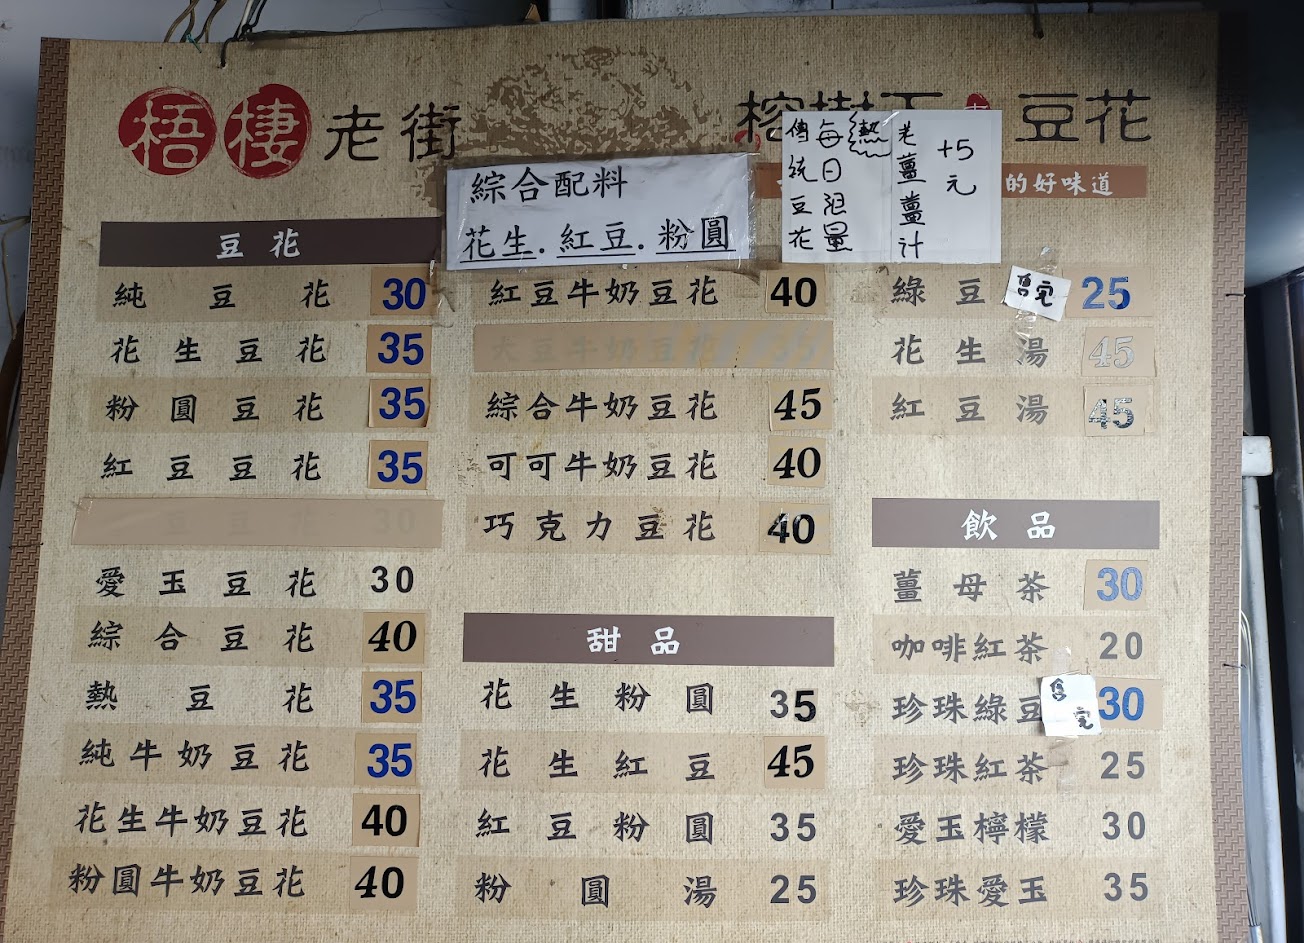 梧棲老街
豆花
的好味道
綜合配料
花生.紅豆.粉圓
傳統豆花
每日限量
熱
老薑薑汁
+5元
豆花
純豆花 30
花生豆花 35
粉圓豆花 35
紅豆豆花 35
愛玉豆花 30
綜合豆花 40
熱豆花 35
純牛奶豆花 35
花生牛奶豆花 40
粉圓牛奶豆花 40
紅豆牛奶豆花 40
綜合牛奶豆花 45
可可牛奶豆花 40
巧克力豆花 40
甜品
花生粉圓 35
花生紅豆 45
紅豆粉圓 35
粉圓湯 25
綠豆 售完 25
花生湯 45
紅豆湯 45
飲品
薑母茶 30
咖啡紅茶 20
珍珠綠豆 售完 30
珍珠紅茶 25
愛玉檸檬 30
珍珠愛玉 35